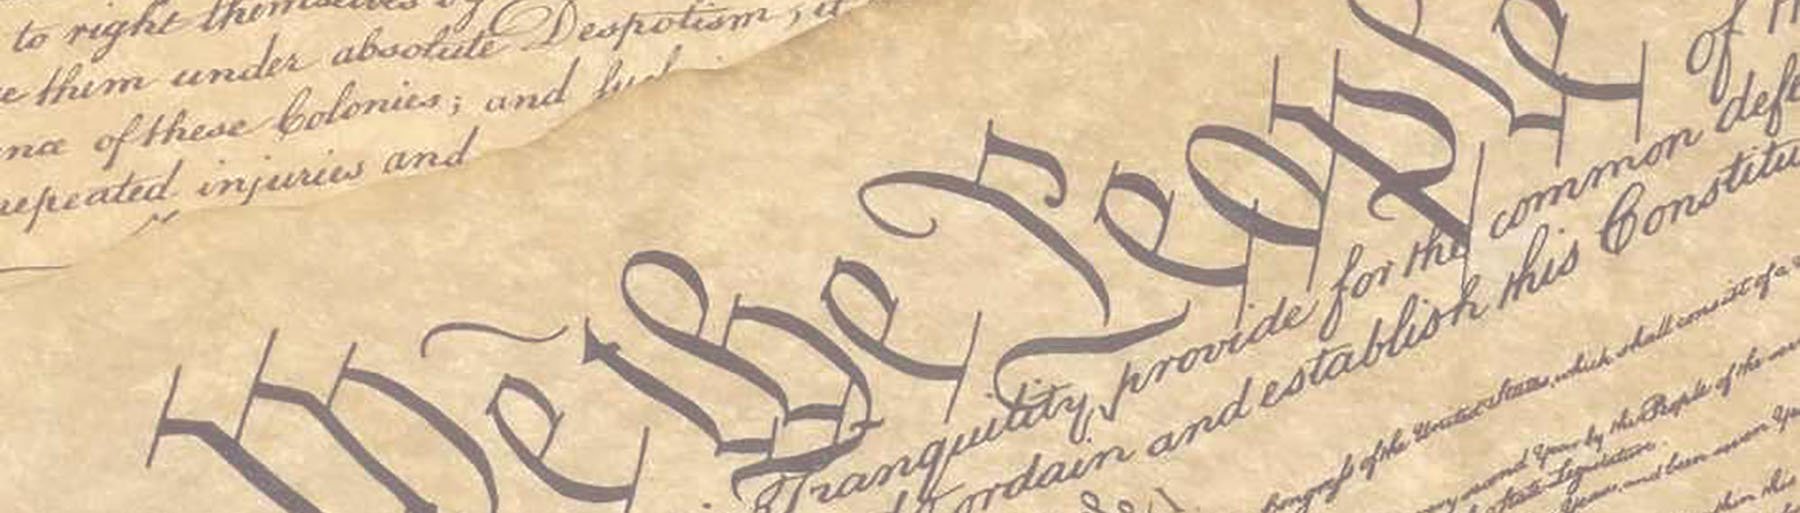 to right themselves by
them under absolute Despotism, it
of these Colonies; and such
repeated injuries and
We the People
of
Tranquility, provide for the common
ordain and establish this
Congress of the United States, which shall consist of a
second Year by the People of the
State Legislature.
Years, and been seven
this